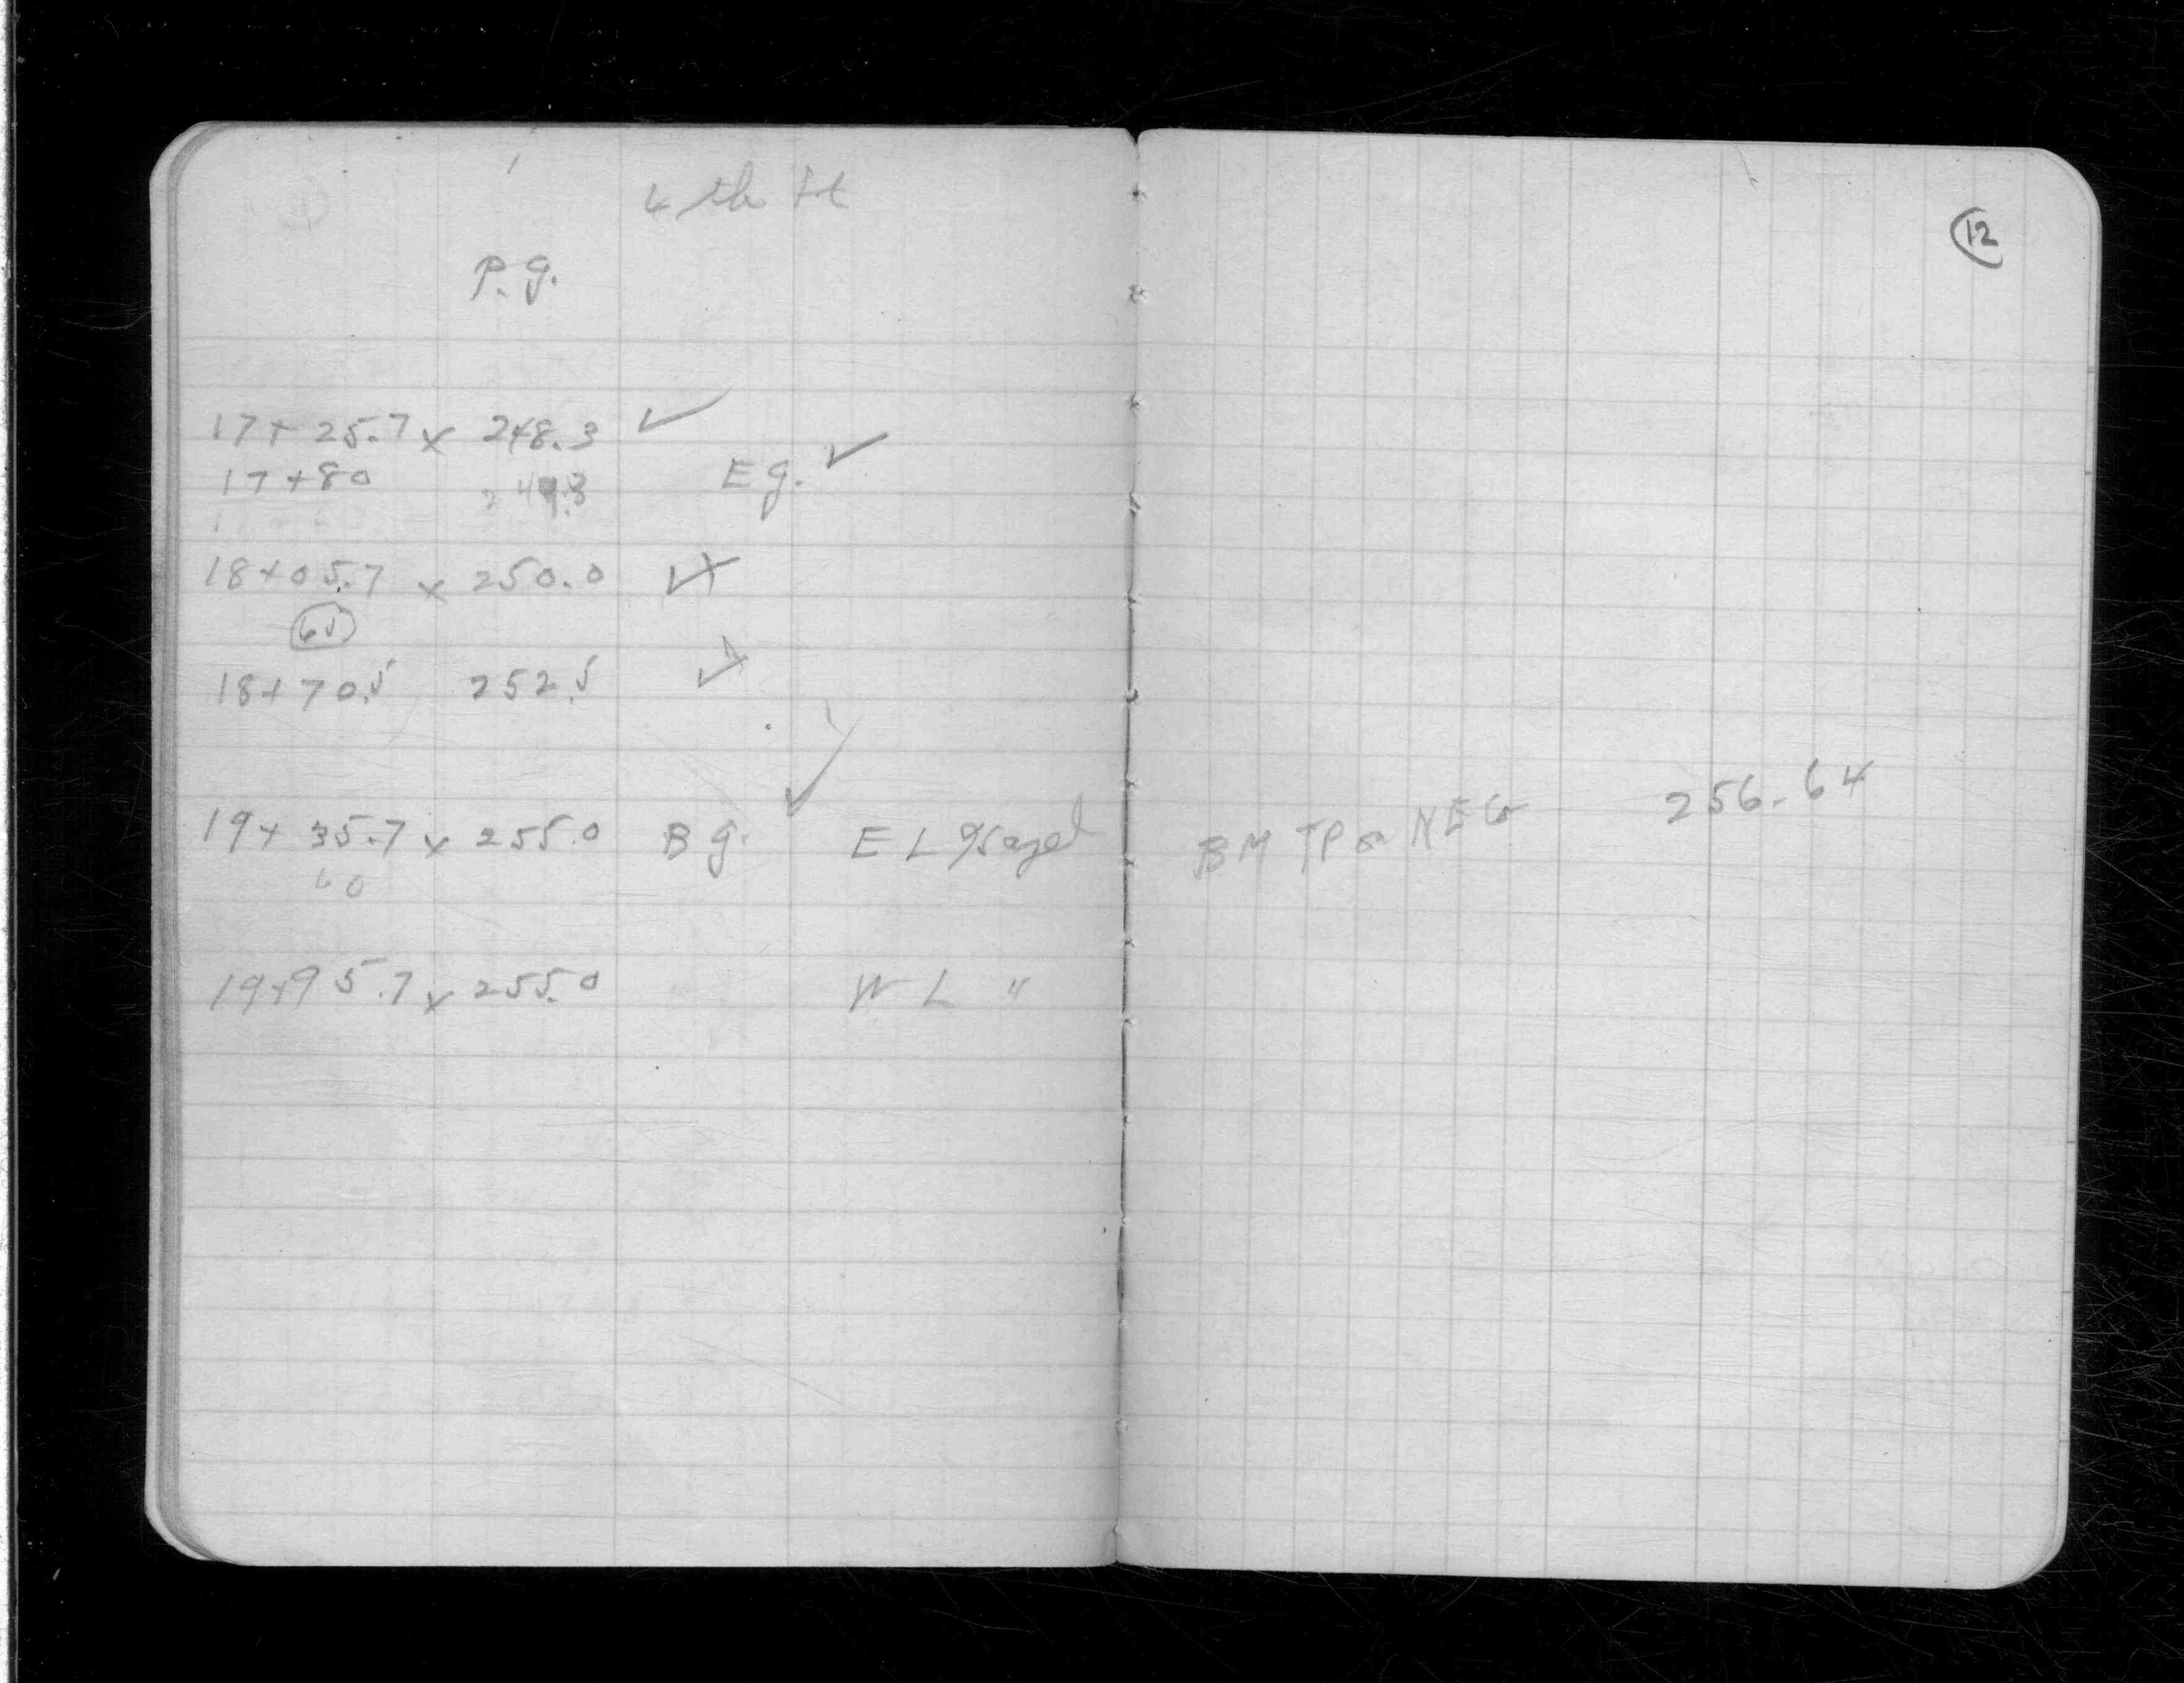 4th St
P.g.
17+25.7 x 248.3 ✓
17+80 249.3 Eg. ✓
18+05.7 x 250.0 ✓
65
18+70.5 252.5 ✓
19+35.7 x 255.0 Bg. ✓ E L Hazel
60
19+95.7 x 255.0 W L "
12
BM TP on NEG 256.64